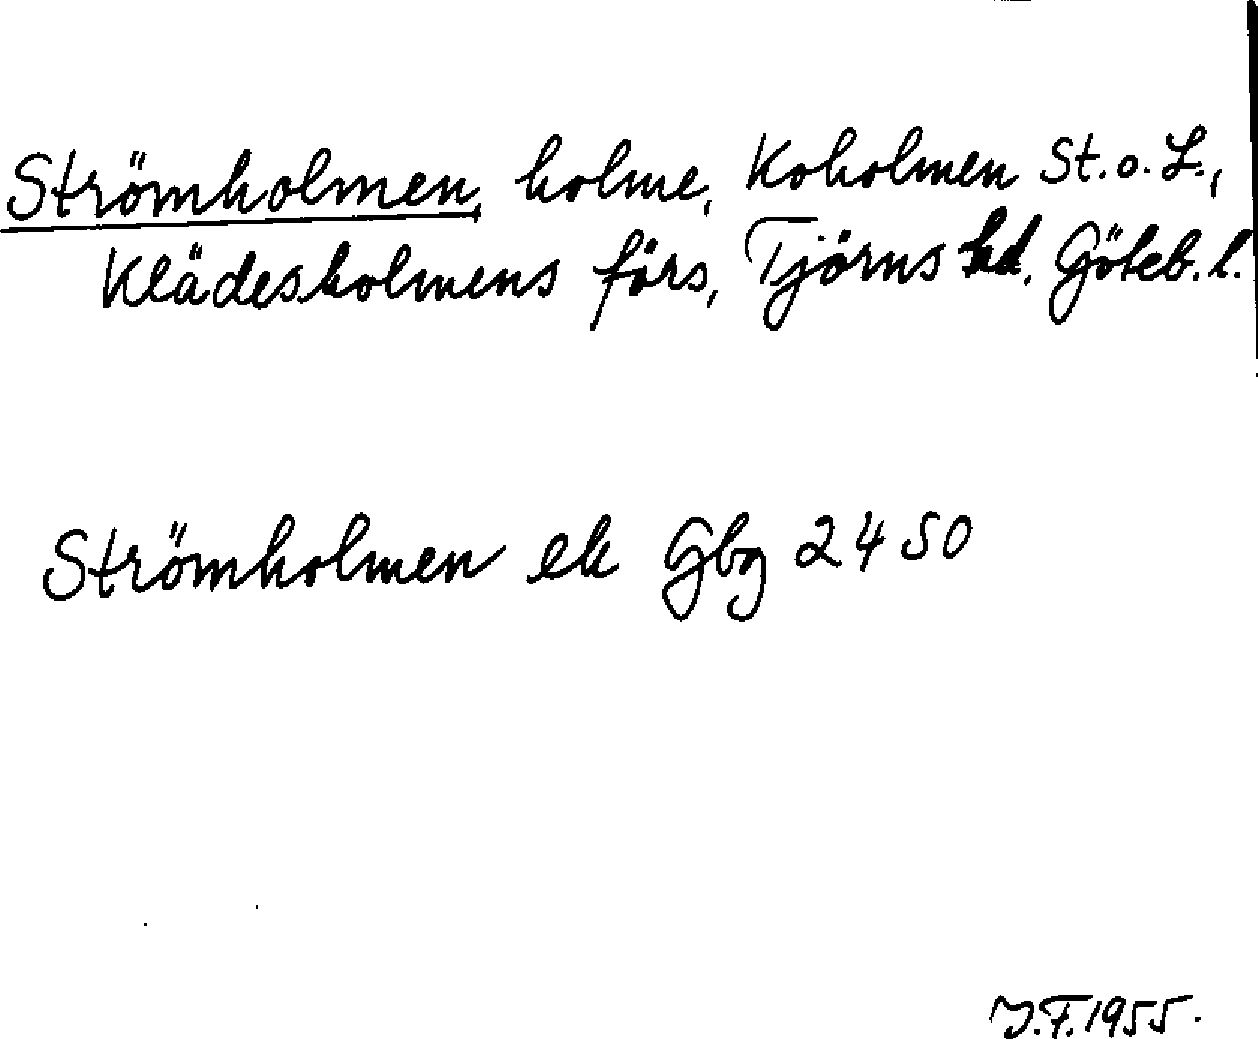 Strömholmen, holme, Koholmen St. o. L.,
Klädesholmens förs, Tjörns hd. Göteb. l.
Strömholmen ek Gbg 2450
J.F. 1955.